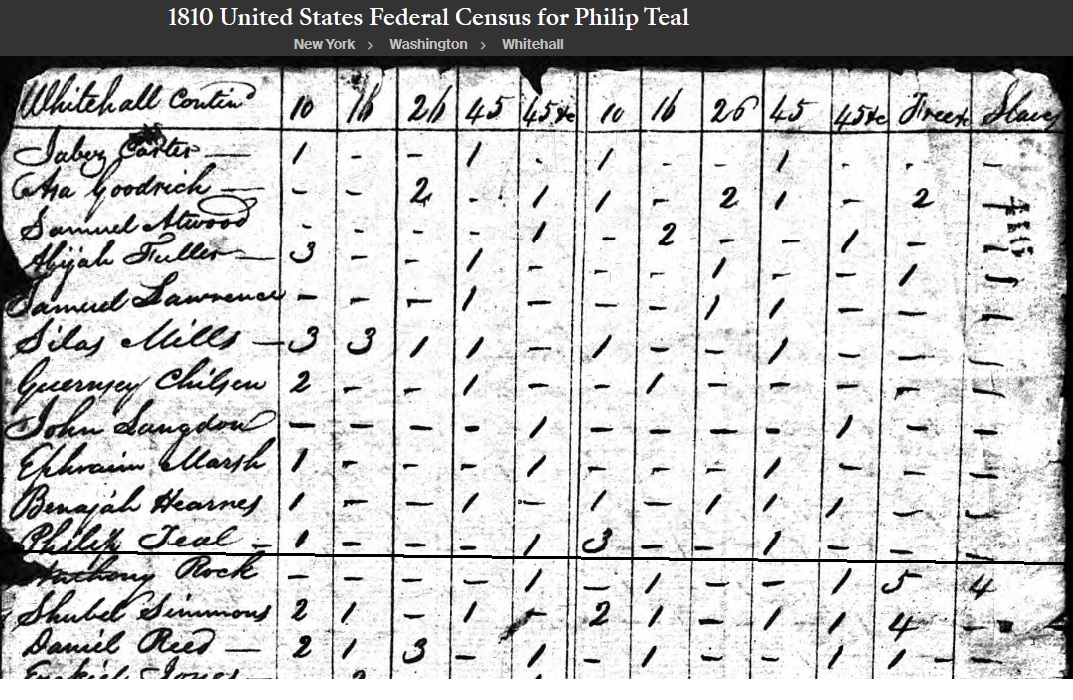 1810 United States Federal Census for Philip Teal
New York > Washington > Whitehall
Whitehall Contind 10 16 26 45 45&c 10 16 26 45 45&c Slaves
Jabez Carter — 1 - - 1 - 1 - - 1 - - -
Asa Goodrich — - - 2 - 1 1 - 2 1 - 2 -
Samuel Atwood - - - - 1 - 2 - - 1 - -
Abijah Fuller — 3 - - 1 - - - 1 - - 1 -
Samuel Lawrence - - - 1 - - - 1 1 - - -
Silas Mills — 3 3 1 1 - 1 - - 1 - - -
Guernsey Chilsen 2 - - 1 - - 1 - - - - -
John Langdon - - - - 1 - - - - 1 - -
Ephraim Marsh 1 - - - 1 - - - 1 - - -
Benajah Hearnes 1 - - 1 - 1 - 1 1 1 - -
Philip Teal - 1 - - - 1 3 - - 1 - - -
Anthony Rock - - - - 1 - 1 - - 1 5 4
Shubel Simmons 2 1 - 1 - 2 1 - 1 1 4 -
Daniel Reed — 2 1 3 - 1 - 1 - - 1 1 -